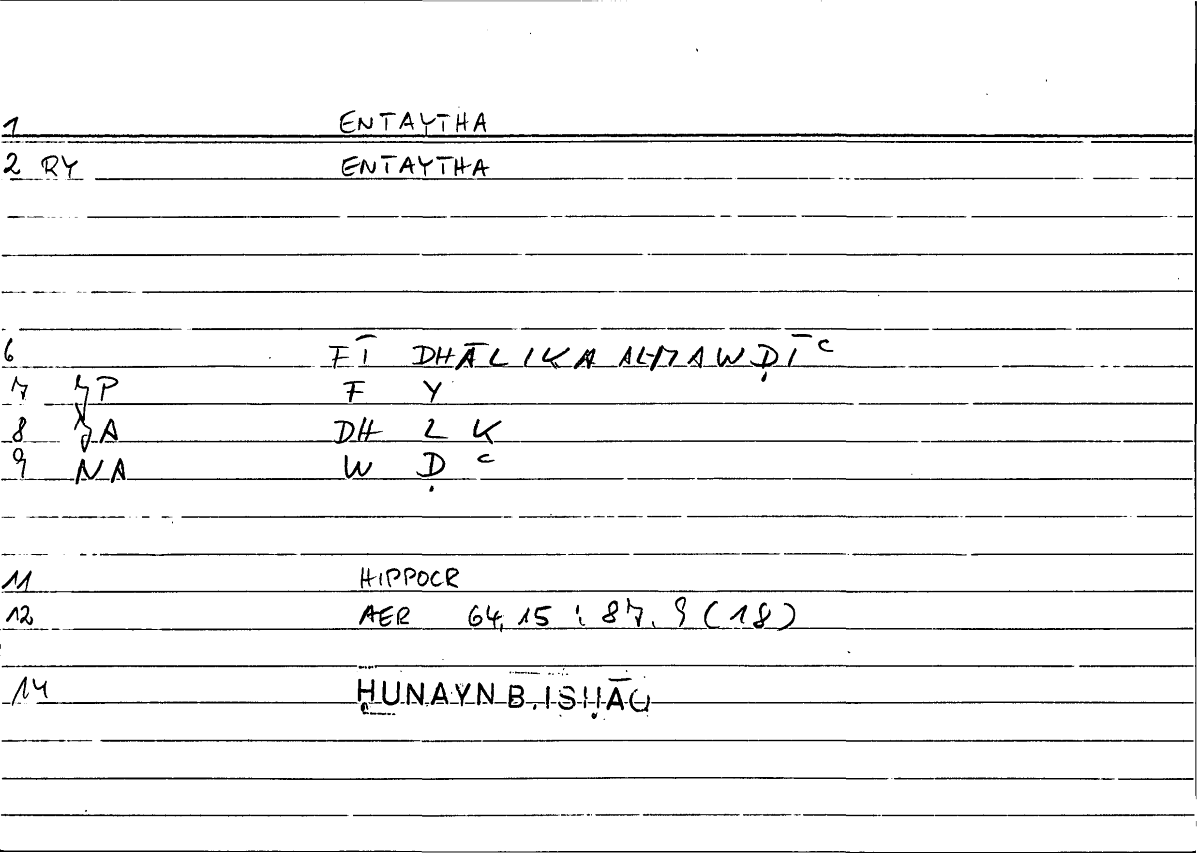 1 ENTAYTHA
2 RY ENTAYTHA
6 FĪ DHĀLIKA ALMAWḌĪ ͨ
7 P F Y
8 A DH L K
9 NA W Ḍ ͨ
11 HIPPOCR
12 AER 64,15 : 87,9 (18)
14 ḤUNAYN B. ISḤĀQ